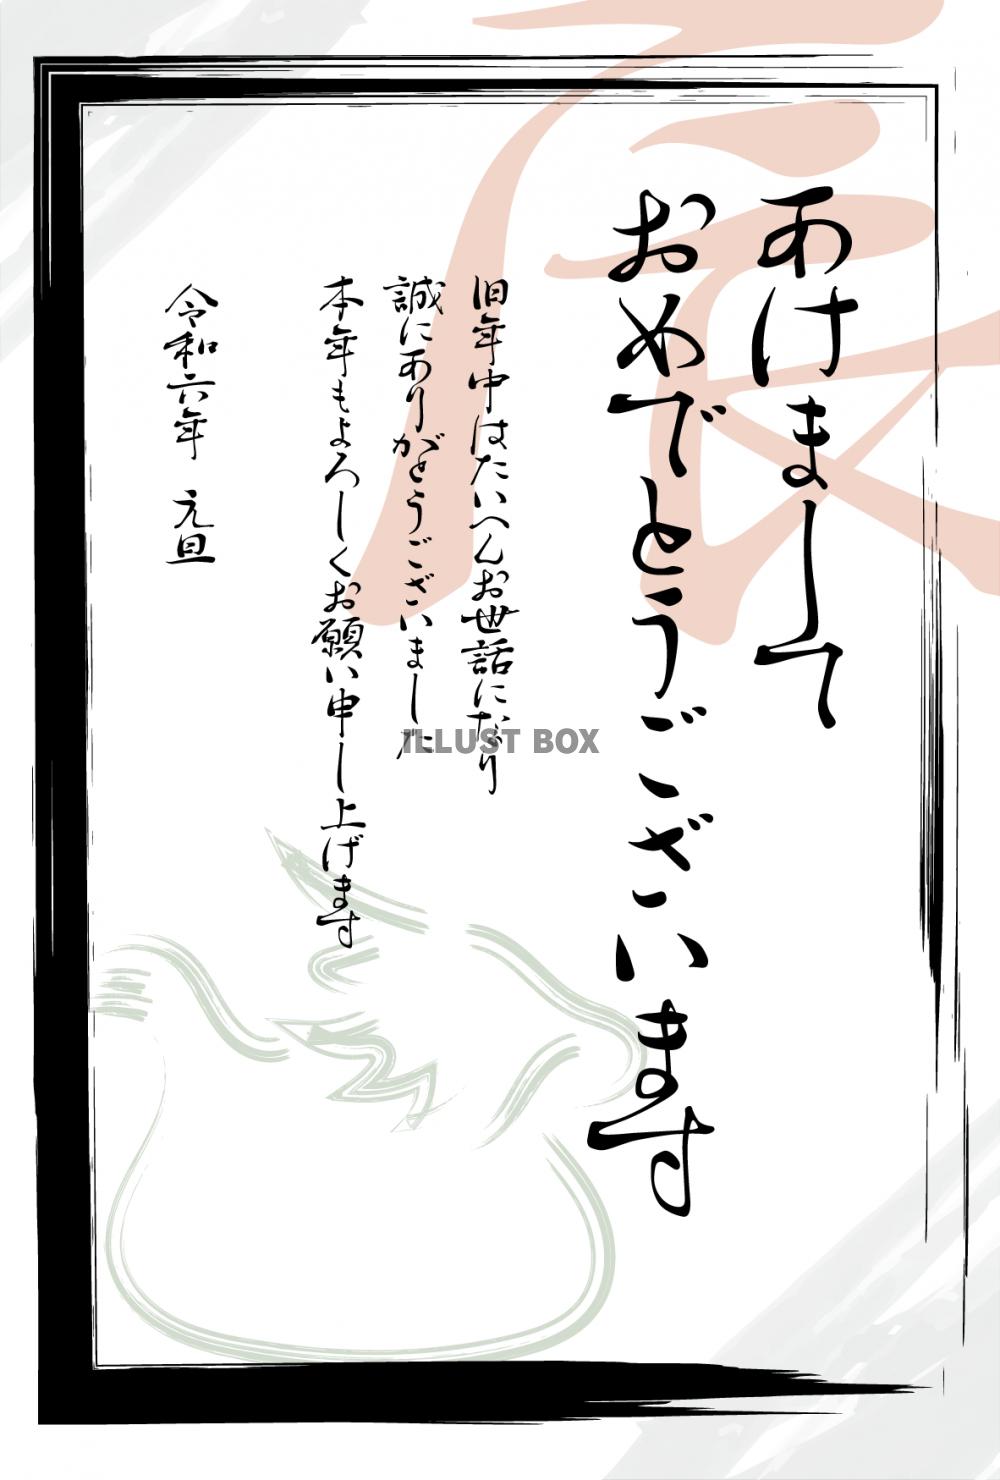 辰
あけまして
おめでとうございます
旧年中はたいへんお世話になり
誠にありがとうございました
本年もよろしくお願い申し上げます
令和六年 元旦
ILLUST BOX